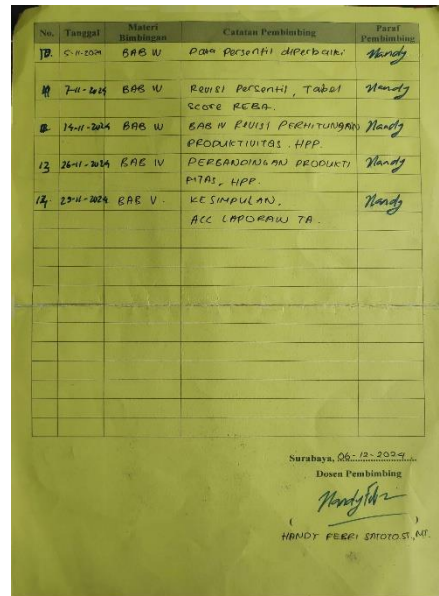 No. Tanggal Materi Bimbingan Catatan Pembimbing Paraf Pembimbing
10. 5-11-2024 BAB IV Data persentil diperbaiki Handy
11 7-11-2024 BAB IV Revisi Persentil, Tabel Handy
Score REBA.
12 14-11-2024 BAB IV BAB IV REVISI PERHITUNGAN Handy
PRODUKTIVITAS. HPP.
13 26-11-2024 BAB IV PERBANDINGAN PRODUKTI Handy
FITAS, HPP.
14. 29-11-2024 BAB V. KESIMPULAN, Handy
ACC LAPORAN TA.
Surabaya, 06-12-2024
Dosen Pembimbing
( )
HANDY FEBRI SATOTO.ST.,MT.